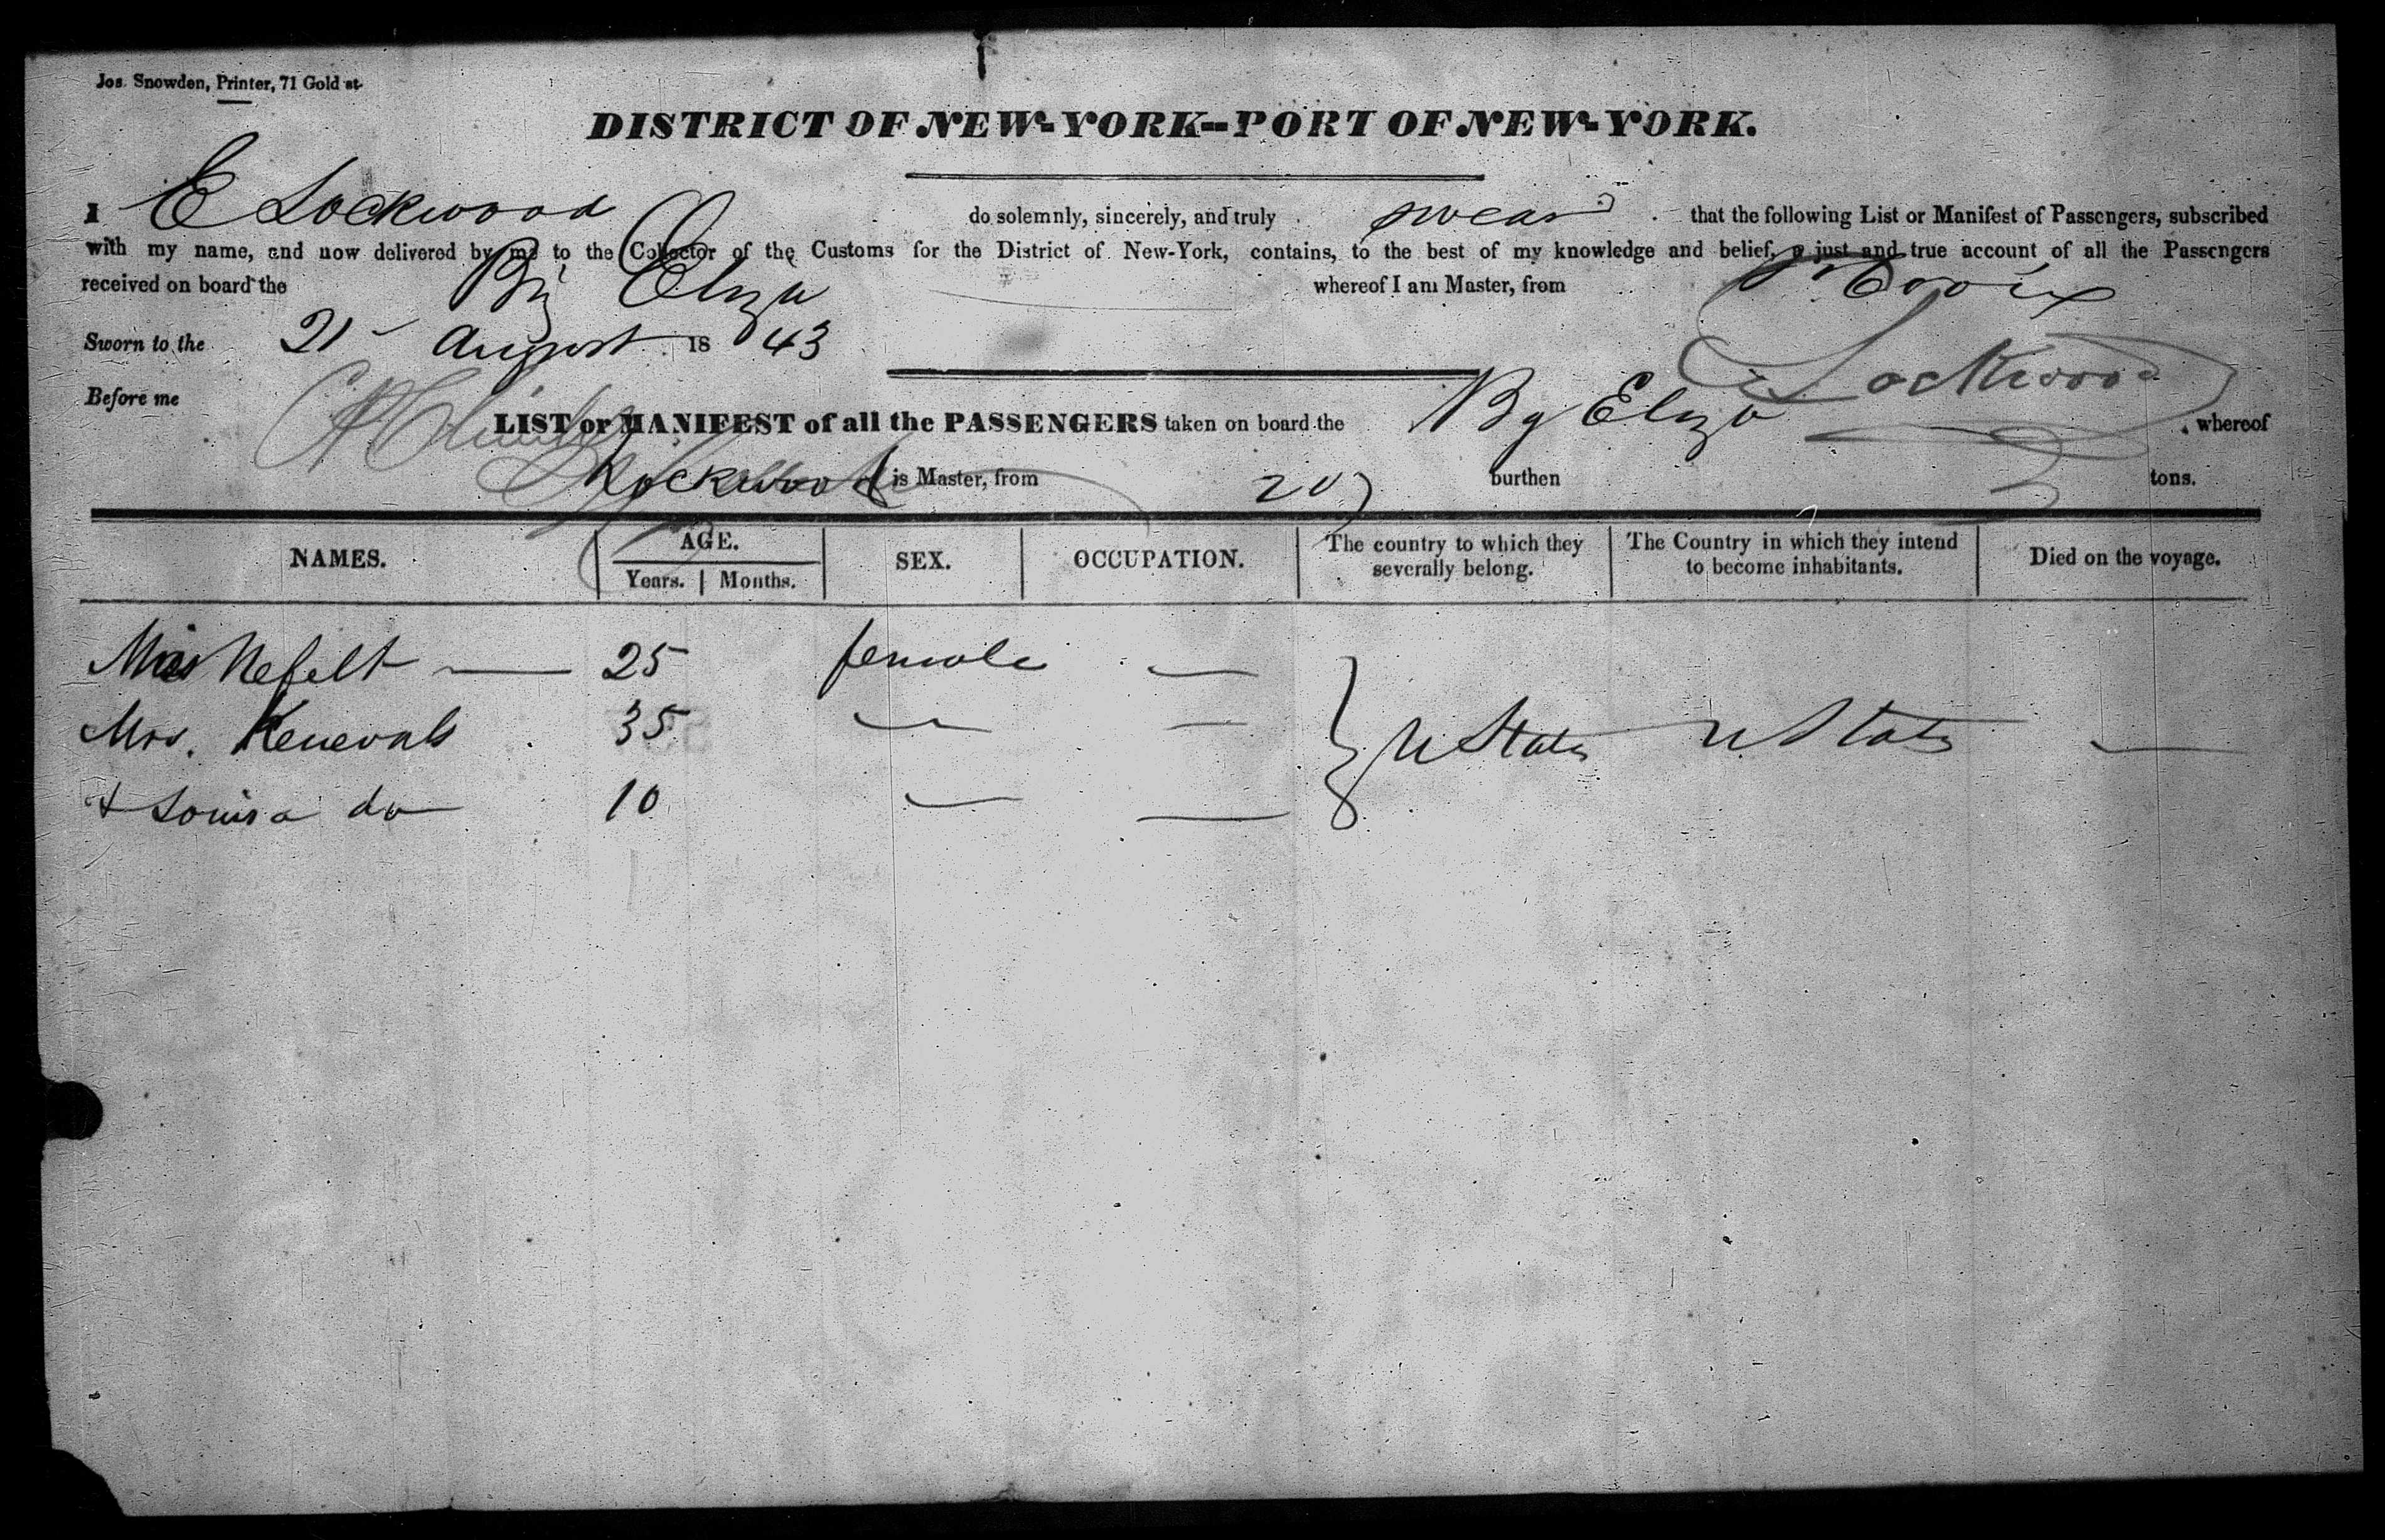 Jos. Snowden, Printer, 71 Gold st.
DISTRICT OF NEW-YORK--PORT OF NEW-YORK.
I E Lockwood do solemnly, sincerely, and truly swear that the following List or Manifest of Passengers, subscribed
with my name, and now delivered by me to the Collector of the Customs for the District of New-York, contains, to the best of my knowledge and belief, a just and true account of all the Passengers
received on board the Brig Eliza whereof I am Master, from St Croix
Sworn to the 21 August 1843
E Lockwood
Before me
LIST or MANIFEST of all the PASSENGERS taken on board the Bg Eliza whereof
Lockwood is Master, from 207 burthen tons.
NAMES. AGE. SEX. OCCUPATION. The country to which they severally belong. The Country in which they intend to become inhabitants. Died on the voyage.
Years. Months.
25 female —
Mrs. 35 — — U States U States —
& Louisa do 10 — —